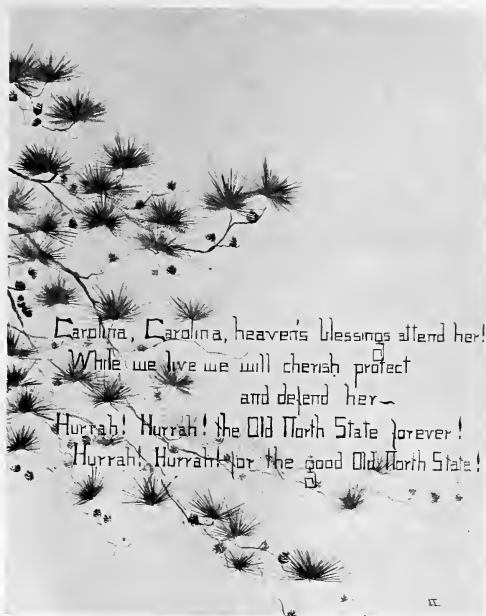 Carolina, Carolina, heaven's blessings attend her!
While we live we will cherish protect
and defend her~
Hurrah! Hurrah! the Old North State forever!
Hurrah! Hurrah! for the good Old North State!